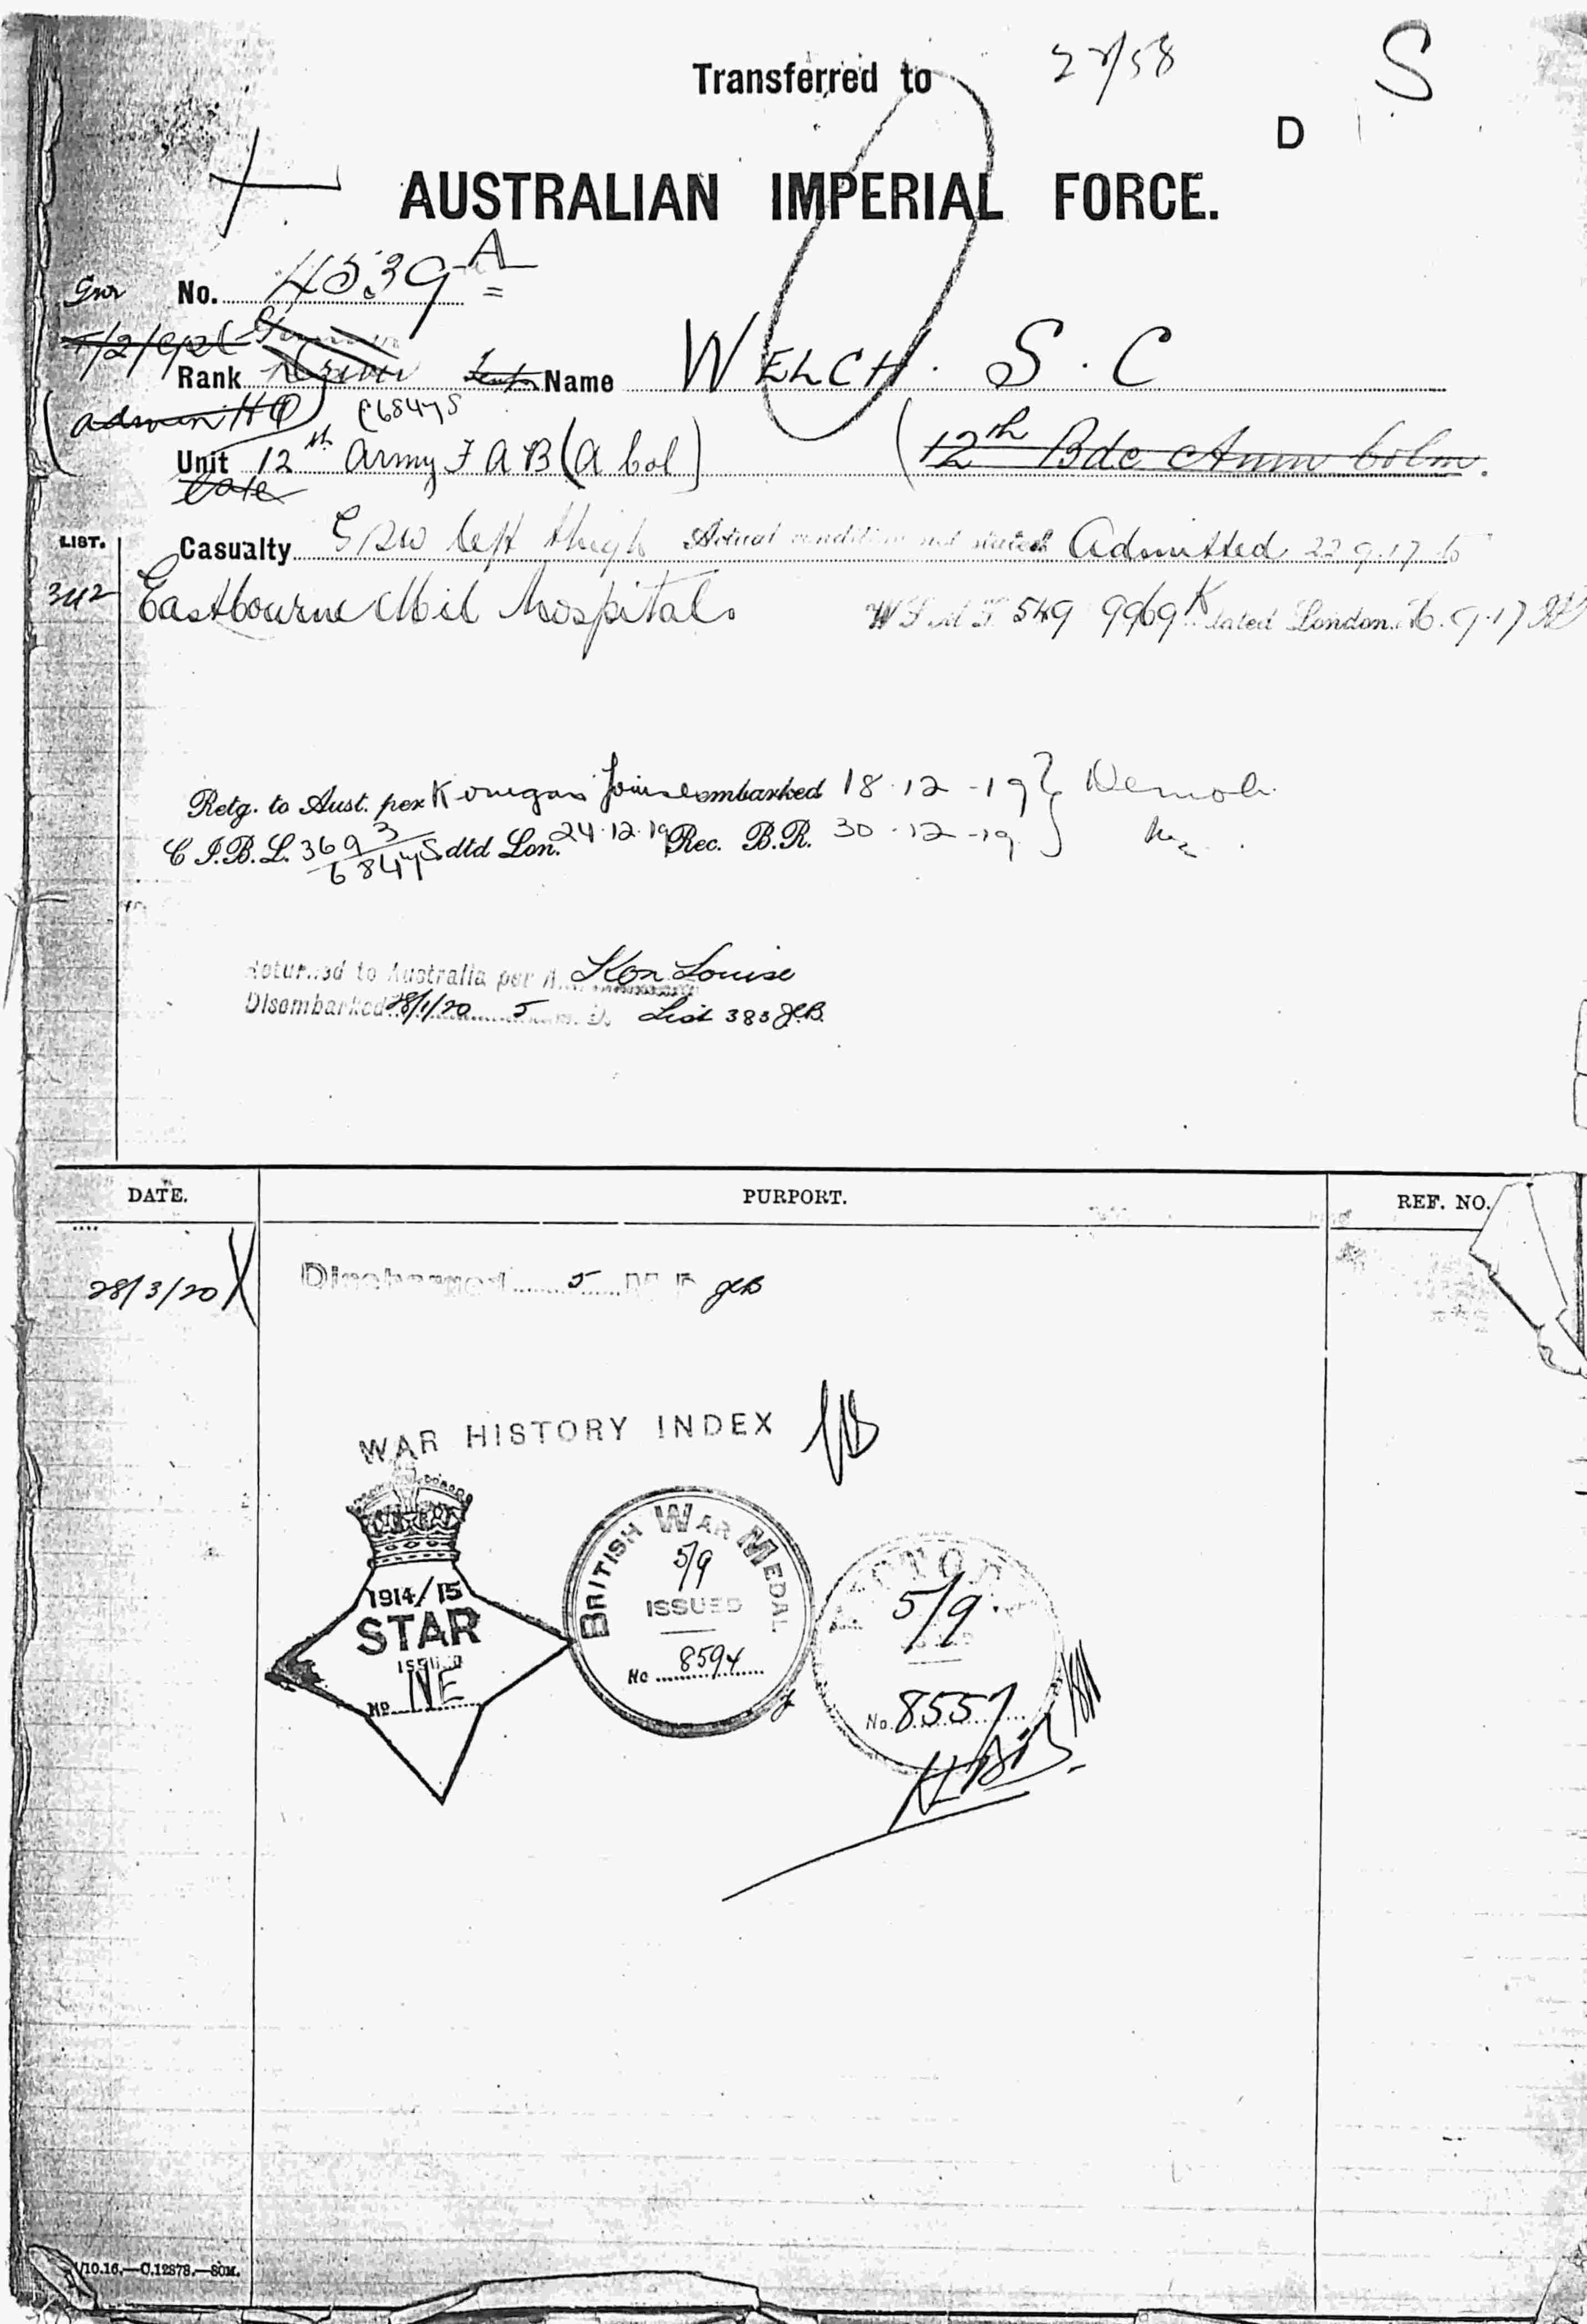 Transferred to
S
D
AUSTRALIAN IMPERIAL FORCE.
Gnr No. 4539 A
T/2/Cpl
Rank Driver Name WELCH. S. C
(Admin HQ) C6847S
Unit 12th Army F A B (A Col) (12th Bde Amm Colm.
late
LIST. Casualty GSW left thigh Actual condition not stated Admitted 22.9.17 to
342 Eastbourne Mil Hospital.
549 9969 K dated London
Retg. to Aust. per Konigin Louise embarked 18.12-19 } Demob.
C I.B.L. 3693 dtd Lon. 24.12.19 Rec. B.R. 30-12-19
6847S
Returned to Australia per Kon Louise
Disembarked 28/1/20 5 M. D. List 383 JCB.
DATE. PURPORT. REF. NO.
28/3/20 Discharged 5 M D JCB
WAR HISTORY INDEX
1914/15
STAR
ISSUED
No. NE
BRITISH WAR MEDAL
5/9
ISSUED
No 8594
VICTORY
5/9
No. 8557
/10.16.—C.12878.—50M.